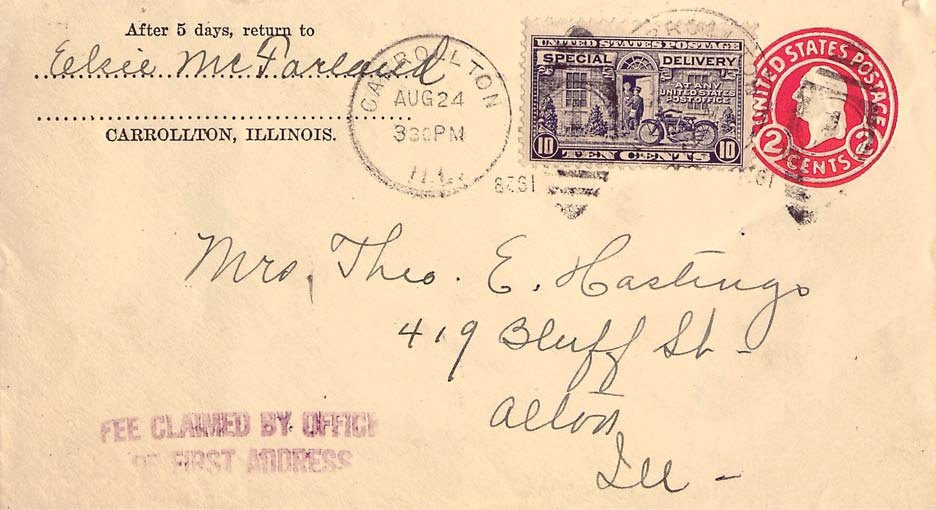 After 5 days, return to
Elsie McFarland
CARROLLTON, ILLINOIS.
CARROLLTON
AUG 24
3 30 PM
ILL.
1928
UNITED STATES POSTAGE
SPECIAL DELIVERY
AT ANY
UNITED STATES
POST OFFICE
10 TEN CENTS 10
UNITED STATES POSTAGE
2 CENTS 2
Mrs. Theo. E. Hastings
419 Bluff St -
Alton
Ill -
FEE CLAIMED BY OFFICE
OF FIRST ADDRESS